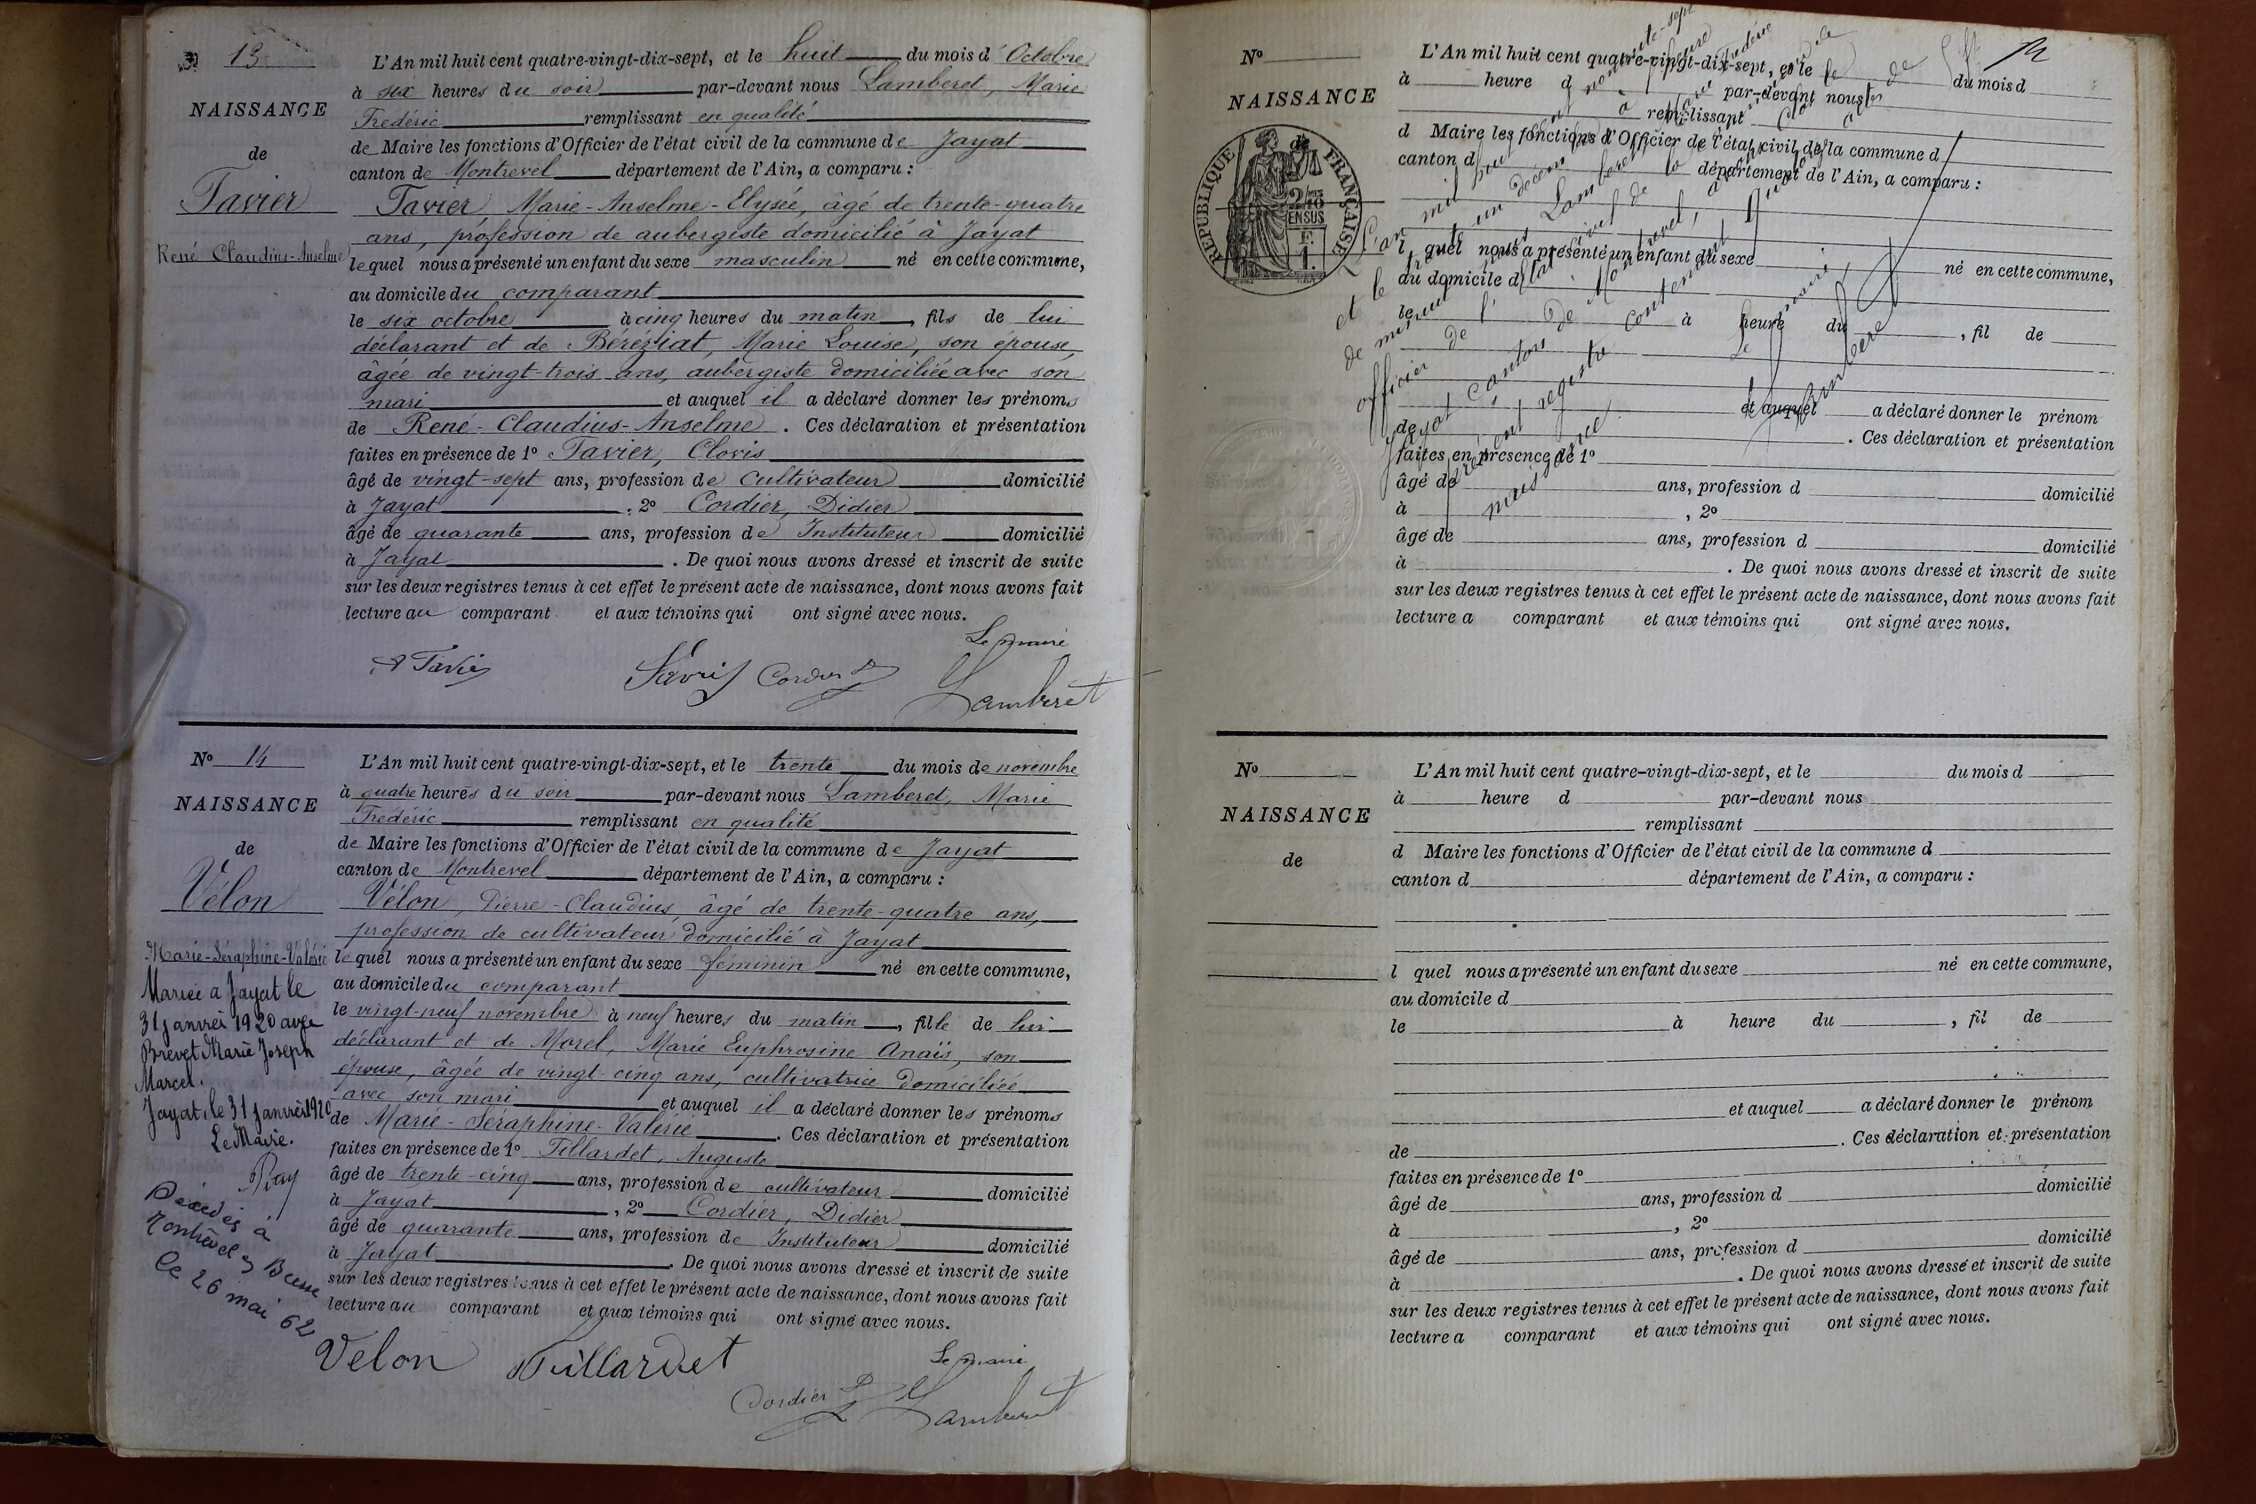 N° 13
NAISSANCE
de
Favier
René Claudius-Anselme
L'An mil huit cent quatre-vingt-dix-sept, et le huit du mois d'Octobre
à six heures du soir par-devant nous Lamberet, Marie
Frédéric remplissant en qualité
de Maire les fonctions d'Officier de l'état civil de la commune de Jayat
canton de Montrevel département de l'Ain, a comparu :
Favier, Marie-Anselme-Elysée, âgé de trente-quatre
ans, profession de aubergiste domicilié à Jayat
lequel nous a présenté un enfant du sexe masculin né en cette commune,
au domicile du comparant
le six octobre à cinq heures du matin, fils de lui
déclarant et de Béréziat, Marie Louise, son épouse,
âgée de vingt-trois ans, aubergiste domiciliée avec son
mari et auquel il a déclaré donner les prénoms
de René-Claudius-Anselme. Ces déclaration et présentation
faites en présence de 1° Favier, Clovis
âgé de vingt-sept ans, profession de cultivateur domicilié
à Jayat, 2° Cordier, Didier
âgé de quarante ans, profession de Instituteur domicilié
à Jayat. De quoi nous avons dressé et inscrit de suite
sur les deux registres tenus à cet effet le présent acte de naissance, dont nous avons fait
lecture au comparant et aux témoins qui ont signé avec nous.
Le maire
A Favier Favier Cordier D
Lamberet
N° 14
NAISSANCE
de
Vélon
Marie-Séraphine-Valérie
Mariée à Jayat le
31 janvier 1920 avec
Brevet Marie Joseph
Marcel.
Jayat, le 31 janvier 1920
Le Maire.
Ray
Décédée à
Montrevel en Bresse
le 26 mai 62
L'An mil huit cent quatre-vingt-dix-sept, et le trente du mois de novembre
à quatre heures du soir par-devant nous Lamberet, Marie
Frédéric remplissant en qualité
de Maire les fonctions d'Officier de l'état civil de la commune de Jayat
canton de Montrevel département de l'Ain, a comparu :
Vélon, Pierre-Claudius, âgé de trente-quatre ans,
profession de cultivateur domicilié à Jayat
lequel nous a présenté un enfant du sexe féminin né en cette commune,
au domicile du comparant
le vingt-neuf novembre à neuf heures du matin, fille de lui
déclarant et de Morel, Marie Euphrosine Anaïs, son
épouse, âgée de vingt-cinq ans, cultivatrice domiciliée
avec son mari et auquel il a déclaré donner les prénoms
de Marie-Séraphine-Valérie. Ces déclaration et présentation
faites en présence de 1° Tillardet, Auguste
âgé de trente-cinq ans, profession de cultivateur domicilié
à Jayat, 2° Cordier, Didier
âgé de quarante ans, profession de Instituteur domicilié
à Jayat. De quoi nous avons dressé et inscrit de suite
sur les deux registres tenus à cet effet le présent acte de naissance, dont nous avons fait
lecture au comparant et aux témoins qui ont signé avec nous.
Velon Tillardet
Le maire
Cordier D Lamberet
N°
NAISSANCE
RÉPUBLIQUE FRANÇAISE
2/10 EN SUS
F.
1.
L'An mil huit cent quatre-vingt-dix-sept, et le du mois d
à heure d par-devant nous
remplissant
d Maire les fonctions d'Officier de l'état civil de la commune d
canton d département de l'Ain, a comparu :
l quel nous a présenté un enfant du sexe né en cette commune,
au domicile d
le à heure du , fil de
et auquel a déclaré donner le prénom
de . Ces déclaration et présentation
faites en présence de 1°
âgé de ans, profession d domicilié
à , 2°
âgé de ans, profession d domicilié
à . De quoi nous avons dressé et inscrit de suite
sur les deux registres tenus à cet effet le présent acte de naissance, dont nous avons fait
lecture a comparant et aux témoins qui ont signé avec nous.
L'an mil huit
et le trente un décembre
de nous Lamberet
officier de l'état civil de la
Jayat canton de Montrevel,
présent registre contenant
naissance
Le maire,
Lamberet
N°
NAISSANCE
de
L'An mil huit cent quatre-vingt-dix-sept, et le du mois d
à heure d par-devant nous
remplissant
d Maire les fonctions d'Officier de l'état civil de la commune d
canton d département de l'Ain, a comparu :
l quel nous a présenté un enfant du sexe né en cette commune,
au domicile d
le à heure du , fil de
et auquel a déclaré donner le prénom
de . Ces déclaration et présentation
faites en présence de 1°
âgé de ans, profession d domicilié
à , 2°
âgé de ans, profession d domicilié
à . De quoi nous avons dressé et inscrit de suite
sur les deux registres tenus à cet effet le présent acte de naissance, dont nous avons fait
lecture a comparant et aux témoins qui ont signé avec nous.